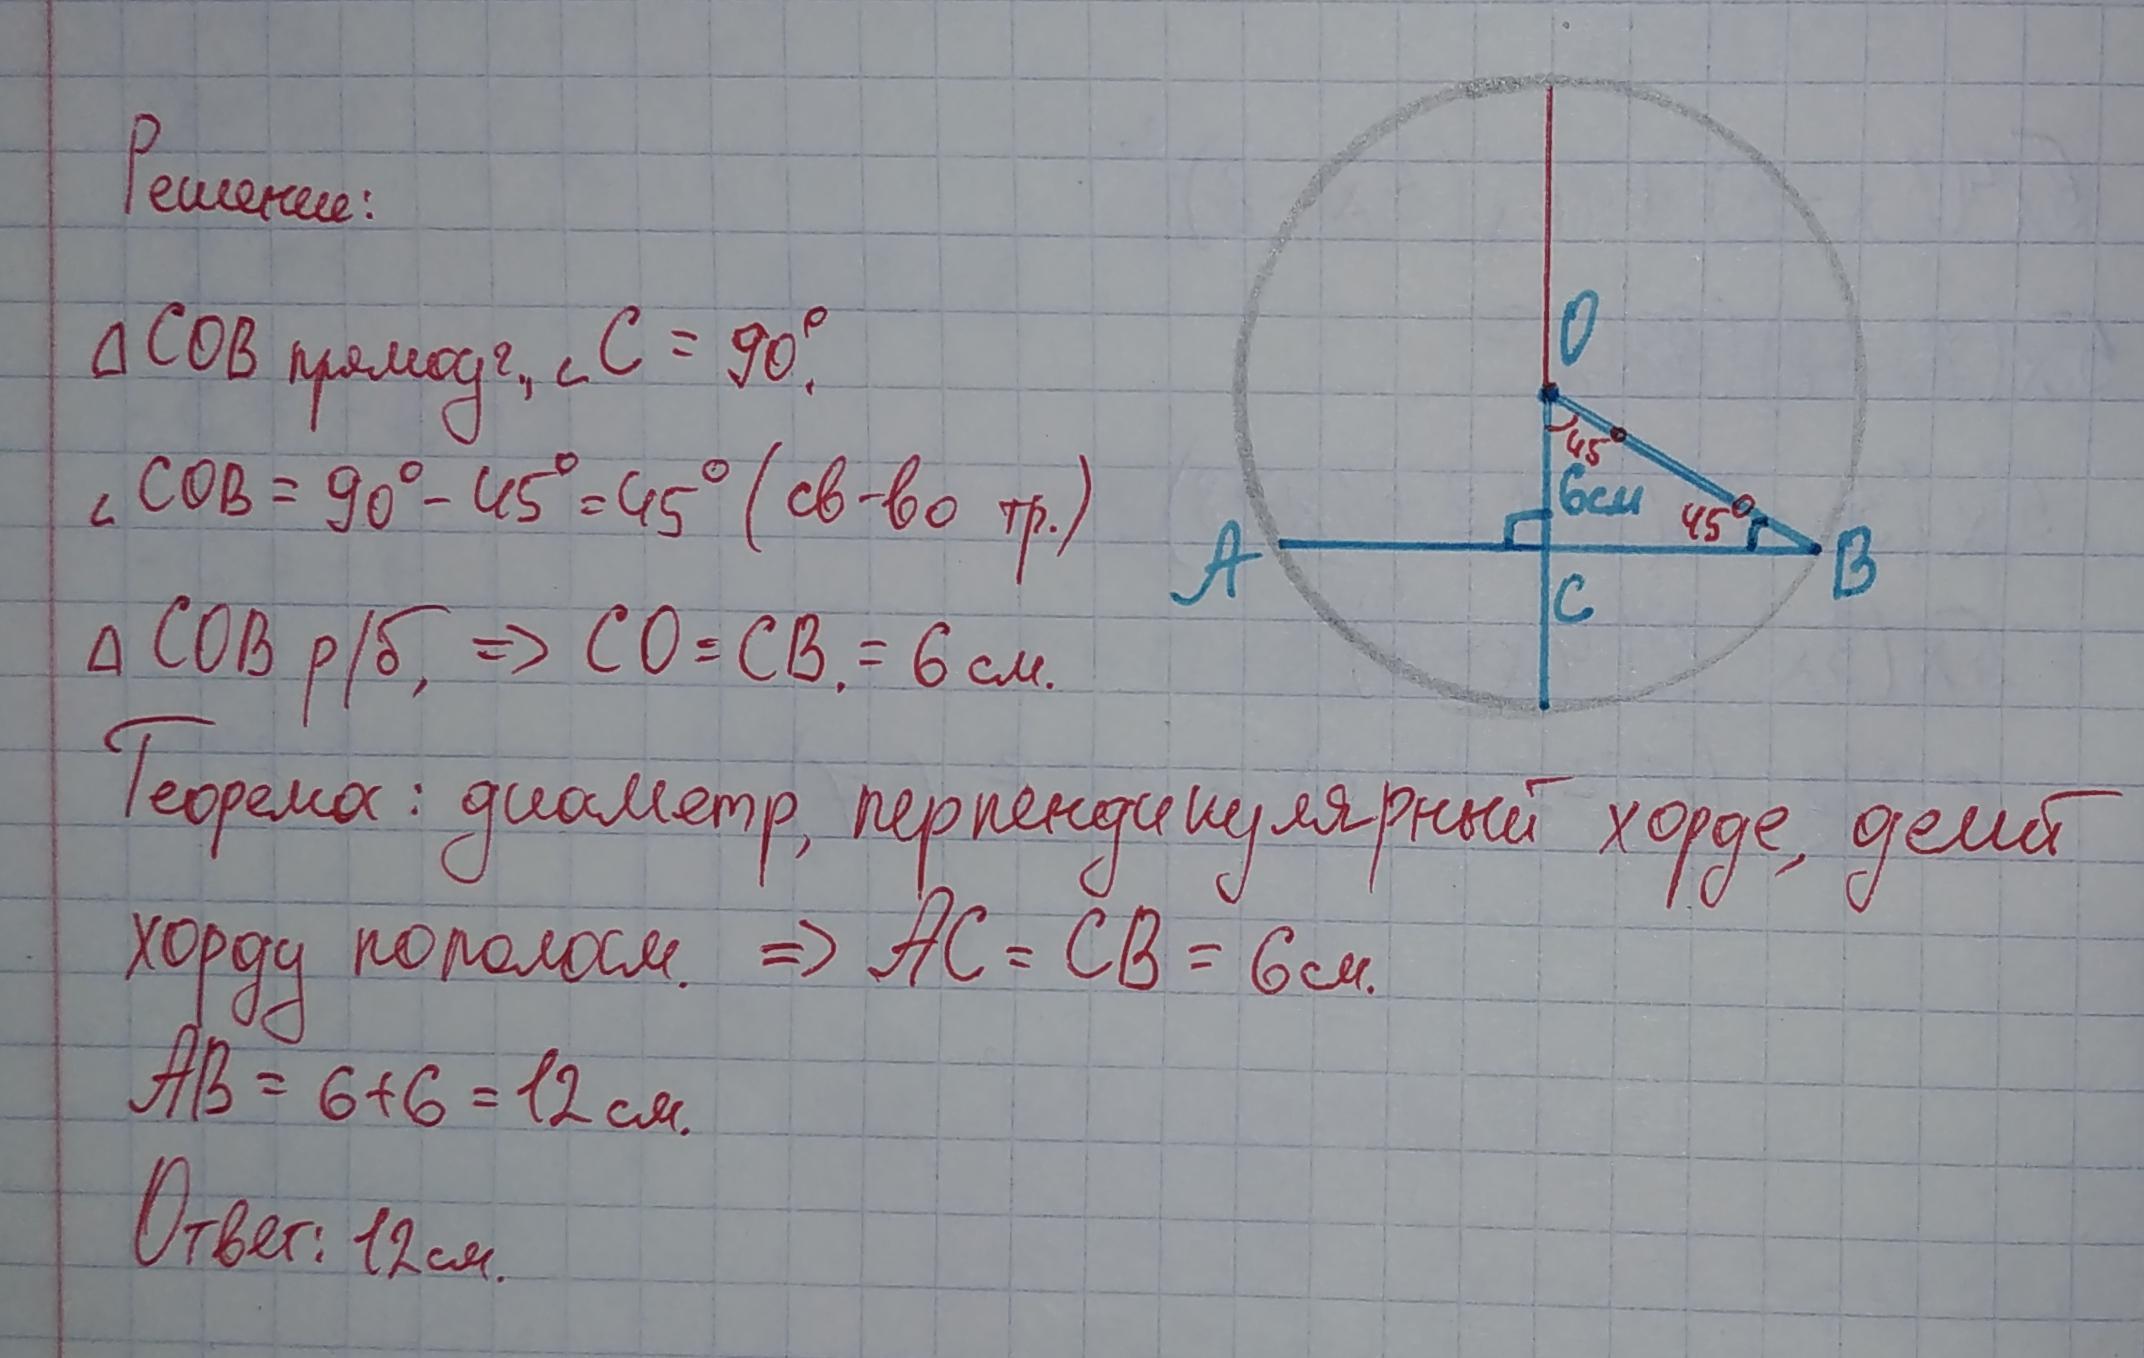 Решение:
△ COB прямоуг., ∠C = 90°.
∠COB = 90° - 45° = 45° (св-во тр.)
△ COB р/б, => CO = CB. = 6 см.
Теорема: диаметр, перпендикулярный хорде, делит
хорду пополам. => AC = CB = 6 см.
AB = 6+6 = 12 см.
Ответ: 12 см.
O
45
6 см
45
A
B
C